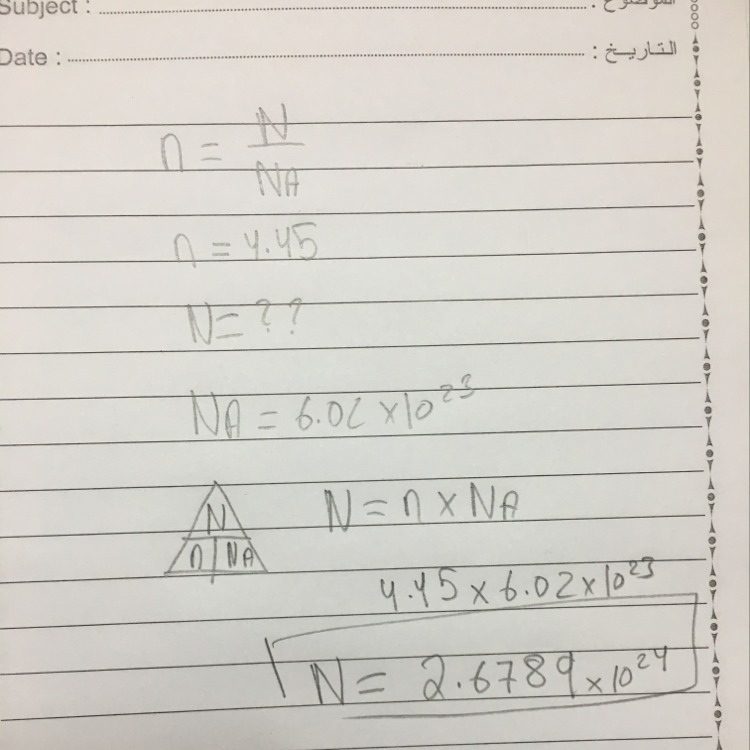 Subject : الموضوع :
Date : التاريخ :
n = N / NA
n = 4.45
N = ??
NA = 6.02 × 10²³
N
n | NA
N = n × NA
4.45 × 6.02 × 10²³
N = 2.6789 × 10²⁴